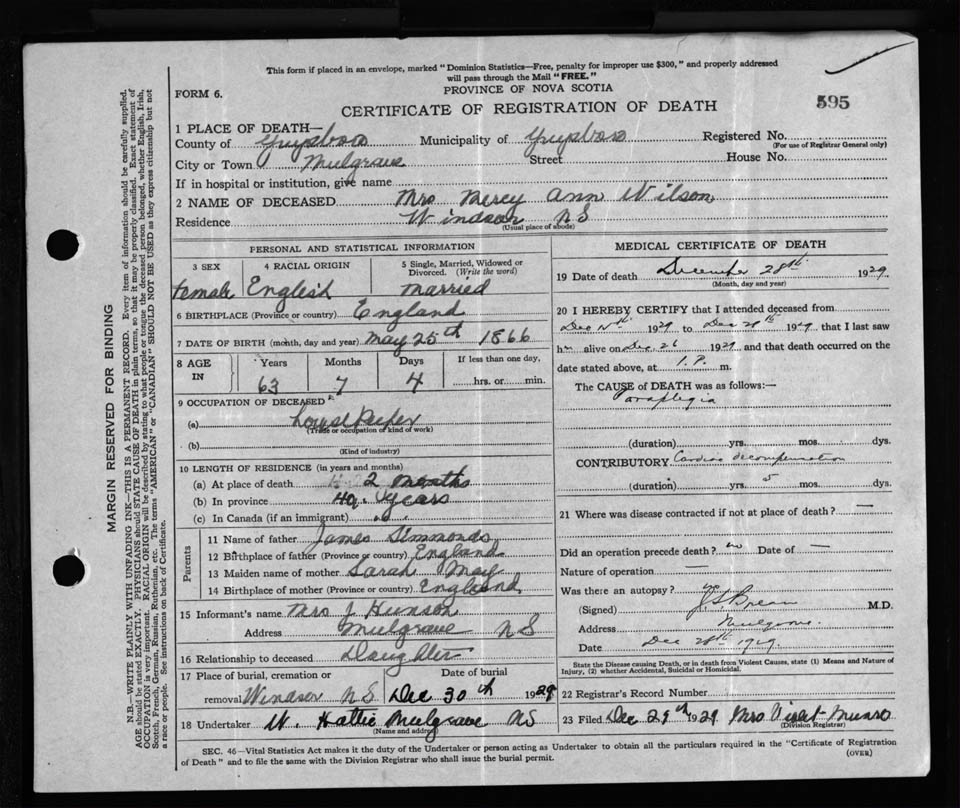 This form if placed in an envelope, marked "Dominion Statistics—Free, penalty for improper use $300," and properly addressed
will pass through the Mail "FREE."
FORM 6.
PROVINCE OF NOVA SCOTIA
595
CERTIFICATE OF REGISTRATION OF DEATH
1 PLACE OF DEATH—
County of Guysboro Municipality of Guysboro Registered No.
(For use of Registrar General only)
City or Town Mulgrave Street House No.
If in hospital or institution, give name
2 NAME OF DECEASED Mrs Mercy Ann Wilson
Residence Windsor NS
(Usual place of abode)
PERSONAL AND STATISTICAL INFORMATION
3 SEX 4 RACIAL ORIGIN 5 Single, Married, Widowed or Divorced. (Write the word)
Female English Married
6 BIRTHPLACE (Province or country) England
7 DATE OF BIRTH (month, day and year) May 25th 1866
8 AGE IN Years Months Days If less than one day,
63 7 4 hrs. or min.
9 OCCUPATION OF DECEASED
(a) Housekeeper
(Trade or occupation or kind of work)
(b)
(Kind of industry)
10 LENGTH OF RESIDENCE (in years and months)
(a) At place of death 2 months
(b) In province 40 years
(c) In Canada (if an immigrant)
Parents
11 Name of father James Simmonds
12 Birthplace of father (Province or country) England
13 Maiden name of mother Sarah May
14 Birthplace of mother (Province or country) England
15 Informant's name Mrs J
Address Mulgrave NS
16 Relationship to deceased Daughter
17 Place of burial, cremation or removal Date of burial
Windsor NS Dec 30th 1929
18 Undertaker W. Hattie Mulgrave NS
(Name and address)
MEDICAL CERTIFICATE OF DEATH
19 Date of death December 28th 1929
(Month, day and year)
20 I HEREBY CERTIFY that I attended deceased from
Dec 1929 to Dec 28th 1929, that I last saw
h alive on Dec 26 1929 and that death occurred on the
date stated above, at 1.P. m.
The CAUSE of DEATH was as follows:—
Paraplegia
(duration) yrs. mos. dys.
CONTRIBUTORY Cardiac decompensation
(duration) yrs. 5 mos. dys.
21 Where was disease contracted if not at place of death? —
Did an operation precede death? no Date of —
Nature of operation —
Was there an autopsy? no
(Signed) M.D.
Address Mulgrave.
Date Dec 28th 1929.
State the Disease causing Death, or in death from Violent Causes, state (1) Means and Nature of
Injury, (2) whether Accidental, Suicidal or Homicidal.
22 Registrar's Record Number
23 Filed Dec 29th 1929 Mrs Violet Munro
(Division Registrar)
SEC. 46—Vital Statistics Act makes it the duty of the Undertaker or person acting as Undertaker to obtain all the particulars required in the "Certificate of Registration
of Death" and to file the same with the Division Registrar who shall issue the burial permit.
(OVER)
MARGIN RESERVED FOR BINDING
N.B.—WRITE PLAINLY WITH UNFADING INK—THIS IS A PERMANENT RECORD. Every item of information should be carefully supplied.
AGE should be stated EXACTLY. PHYSICIANS should STATE CAUSE OF DEATH in plain terms, so that it may be properly classified. Exact statement of
OCCUPATION is very important. RACIAL ORIGIN will be described by stating to what people or tongue the deceased person belonged, whether English, Irish,
Scotch, French, German, Russian, Ruthenian, etc. The terms "AMERICAN" or "CANADIAN" SHOULD NOT BE USED as they express citizenship but not
a race or people. See instructions on back of Certificate.